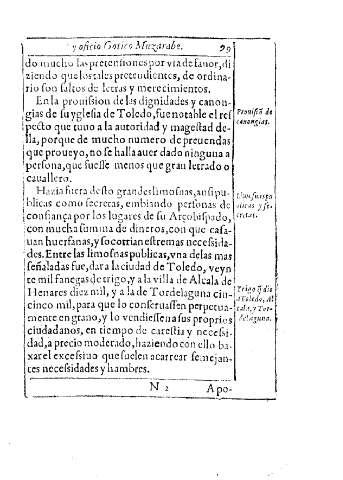 y oficio Gotico Muzarabe. 99
do mucho las pretensiones por via de fauor, di
ziendo que los tales pretendientes, de ordina-
rio son faltos de letras y merecimientos.
En la prouision de las dignidades y canon-
gias de su yglesia de Toledo, fue notable el res
pecto que tuuo a la autoridad y magestad de-
lla, porque de mucho numero de preuendas
que proueyo, no se halla auer dado ninguna a
persona, que fuesse menos que gran letrado o
cauallero.
Prouisiõ de
canongias.
Hazia fuera desto grandes limosnas, ansi pu-
blicas como secretas, embiando personas de
confiança por los lugares de su Arçobispado,
con mucha summa de dineros, con que casa-
uan huerfanas, y socorrian estremas necessida-
des. Entre las limosnas publicas, vna de las mas
señaladas fue, dar a la ciudad de Toledo, veyn
te mil fanegas de trigo, y a la villa de Alcala de
Henares diez mil, y a la de Tordelaguna cin-
cinco mil, para que lo conseruassen perpetua-
mente en grano, y lo vendiessen a sus proprios
ciudadanos, en tiempo de carestia y necessi-
dad, a precio moderado, haziendo con ello ba-
xar el excessiuo que suelen acarrear semejan-
tes necessidades y hambres.
Limosnas
publicas y se-
cretas.
Trigo q̃ dio
a Toledo, Al
cala, y Tor-
delaguna.
N 2 Apo-